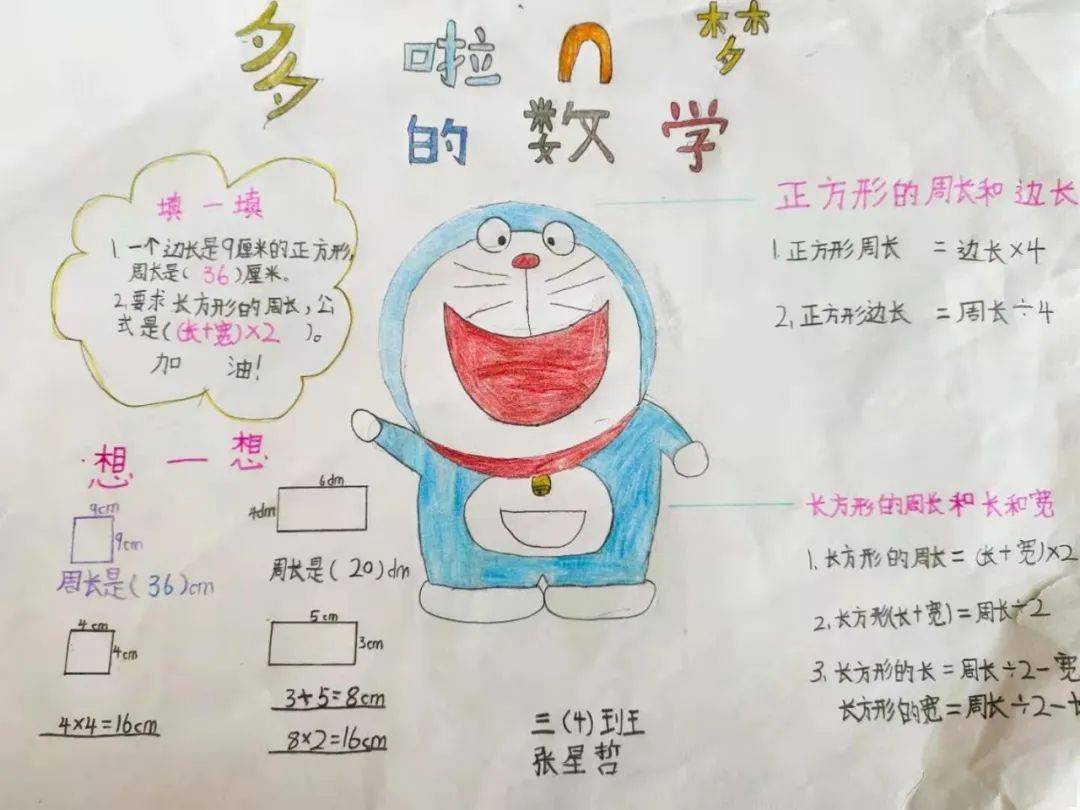 多啦A梦
的数学
填一填
1.一个边长是9厘米的正方形,
周长是(36)厘米。
2.要求长方形的周长,公
式是((长+宽)×2)。
加油!
想一想
9cm
9cm
周长是(36)cm
6dm
4dm
周长是(20)dm
4cm
4cm
4×4=16cm
5cm
3cm
3+5=8cm
8×2=16cm
正方形的周长和边长
1.正方形周长=边长×4
2.正方形边长=周长÷4
长方形的周长和长和宽
1.长方形的周长=(长+宽)×2
2.长方形(长+宽)=周长÷2
3.长方形的长=周长÷2-宽
长方形的宽=周长÷2-长
三(4)班
张星哲